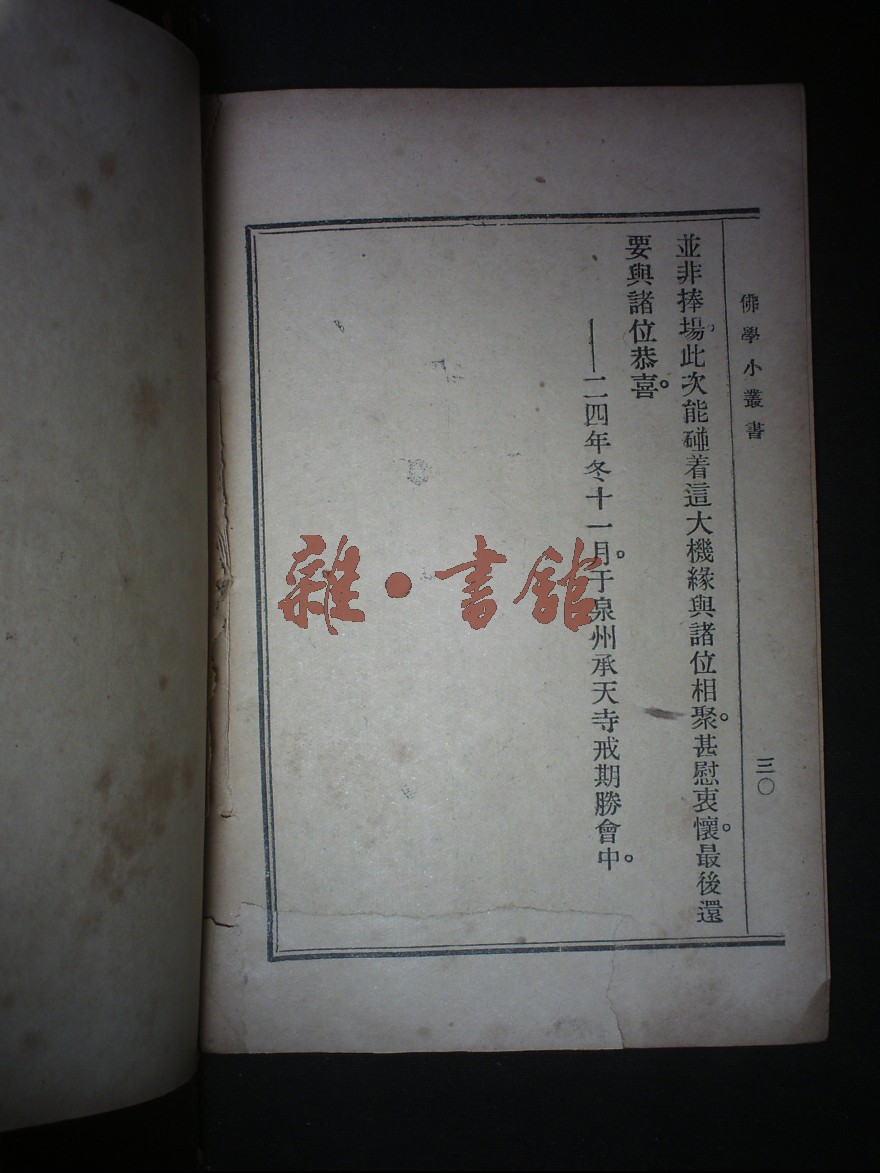 佛學小叢書
三〇
並非捧場。此次能碰着這大機緣與諸位相聚。甚慰衷懷。最後還
要與諸位恭喜。
——二四年冬十一月。于泉州承天寺戒期勝會中。
雜·書館